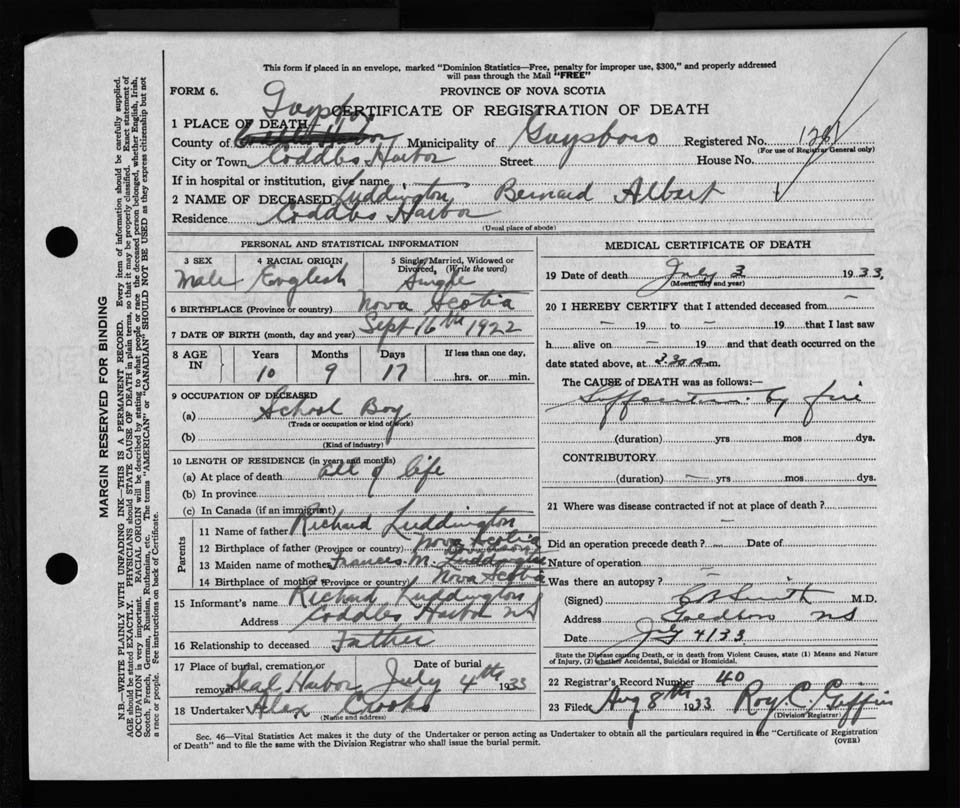 This form if placed in an envelope, marked "Dominion Statistics—Free, penalty for improper use, $300," and properly addressed
will pass through the Mail "FREE"
FORM 6. PROVINCE OF NOVA SCOTIA
CERTIFICATE OF REGISTRATION OF DEATH
1 PLACE OF DEATH
County of Municipality of Guysboro Registered No. 1281
(For use of Registrar General only)
City or Town Coddles Harbor Street House No.
If in hospital or institution, give name
2 NAME OF DECEASED Luddington Bernard Albert
Residence Coddles Harbor
(Usual place of abode)
PERSONAL AND STATISTICAL INFORMATION
3 SEX 4 RACIAL ORIGIN 5 Single, Married, Widowed or
Divorced, (Write the word)
Male English Single
6 BIRTHPLACE (Province or country) Nova Scotia
7 DATE OF BIRTH (month, day and year) Sept 16th 1922
8 AGE IN Years Months Days If less than one day,
10 9 17 hrs. or min.
9 OCCUPATION OF DECEASED
(a) School Boy
(Trade or occupation or kind of work)
(b)
(Kind of industry)
10 LENGTH OF RESIDENCE (in years and months)
(a) At place of death all of life
(b) In province
(c) In Canada (if an immigrant)
Parents
11 Name of father Richard Luddington
12 Birthplace of father (Province or country) Nova Scotia
13 Maiden name of mother Frances M.
14 Birthplace of mother (Province or country) Nova Scotia
15 Informant's name Richard Luddington
Address Coddles Harbor NS
16 Relationship to deceased Father
17 Place of burial, cremation or Date of burial
removal Seal Harbor July 4th 1933
18 Undertaker Alex Crooks
(Name and address)
MEDICAL CERTIFICATE OF DEATH
19 Date of death July 3 1933
(Month, day and year)
20 I HEREBY CERTIFY that I attended deceased from —
— 19 to — 19 that I last saw
h alive on — 19 and that death occurred on the
date stated above, at 3.30 a m.
The CAUSE of DEATH was as follows:—
by fire
(duration) yrs mos dys.
CONTRIBUTORY
(duration) — yrs mos dys.
21 Where was disease contracted if not at place of death?
—
Did an operation precede death? — Date of
Nature of operation —
Was there an autopsy? —
(Signed) Smith M.D.
Address NS
Date 4/33
State the Disease causing Death, or in death from Violent Causes, state (1) Means and
Nature of Injury, (2) whether Accidental, Suicidal or Homicidal.
22 Registrar's Record Number 40
23 Filed Aug 8th 1933 Roy C. Giffin
(Division Registrar)
Sec. 46—Vital Statistics Act makes it the duty of the Undertaker or person acting as Undertaker to obtain all the particulars required in the "Certificate of Registration
of Death" and to file the same with the Division Registrar who shall issue the burial permit. (OVER)
MARGIN RESERVED FOR BINDING
N.B.—WRITE PLAINLY WITH UNFADING INK—THIS IS A PERMANENT RECORD. Every item of information should be carefully supplied.
AGE should be stated EXACTLY. PHYSICIANS should STATE CAUSE OF DEATH in plain terms, so that it may be properly classified. Exact statement of
OCCUPATION is very important. RACIAL ORIGIN will be described by stating to what people or race the deceased person belonged, whether English, Irish,
Scotch, French, German, Russian, Ruthenian, etc. The terms "AMERICAN" or "CANADIAN" SHOULD NOT BE USED as they express citizenship but not
a race or people. Fee instructions on back of Certificate.